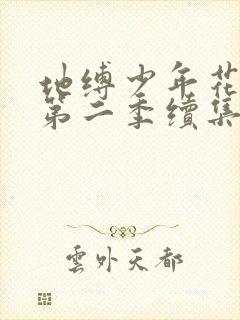 地缚少年花
第二季續集
雲外天都